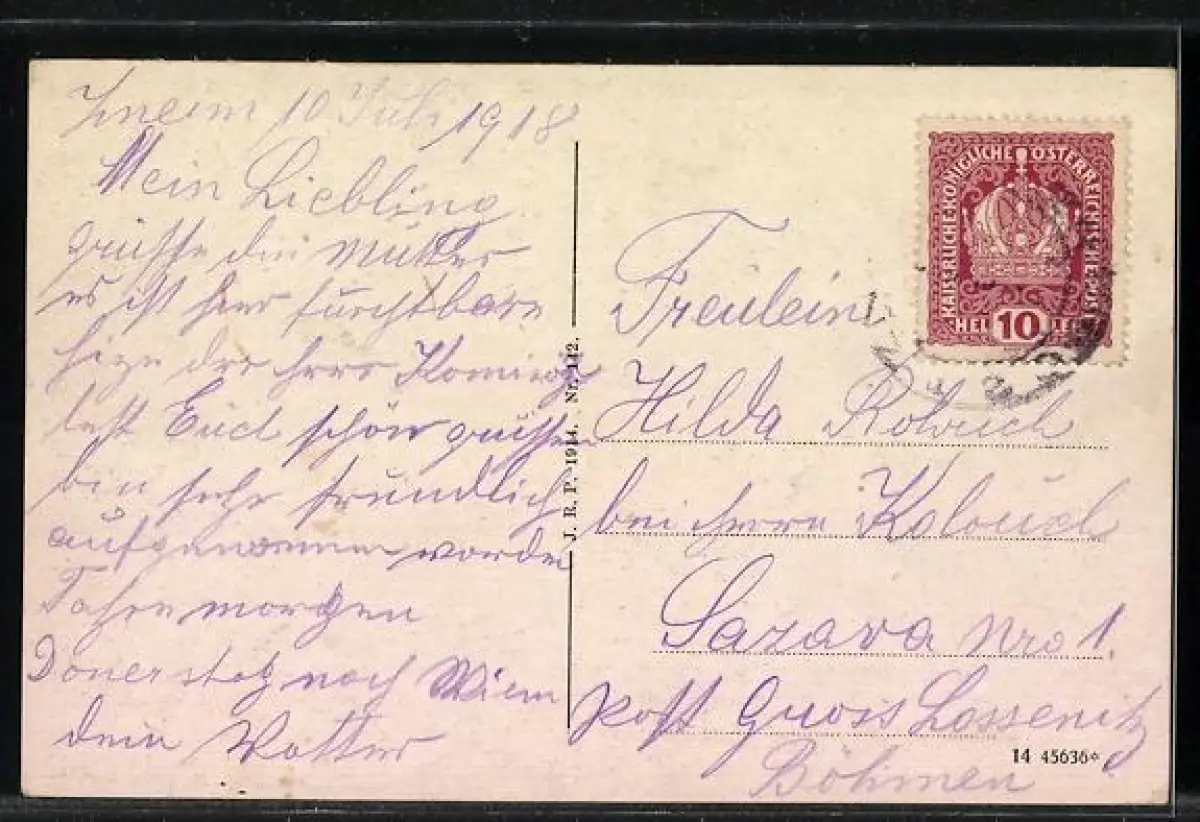 Znaim 10 Juli 1918
Mein Liebling
grüsse die Mutter
es ist hier furchtbare
hize der herr
lest Euch schön grüssen
bin sehr freundlich
aufgenommen worden
Fahre morgen
Donerstag nach Wien
dein Vatter
J. E. P. 1914. Nr. 142.
KAISERLICHE KÖNIGLICHE ÖSTERREICHISCHE POST
HELLER
10
Freulein
Hilda Rohrich
bei Herrn Kolouch
Sazava Nro 1.
Post Gross Lossenitz
Böhmen
14 45636*